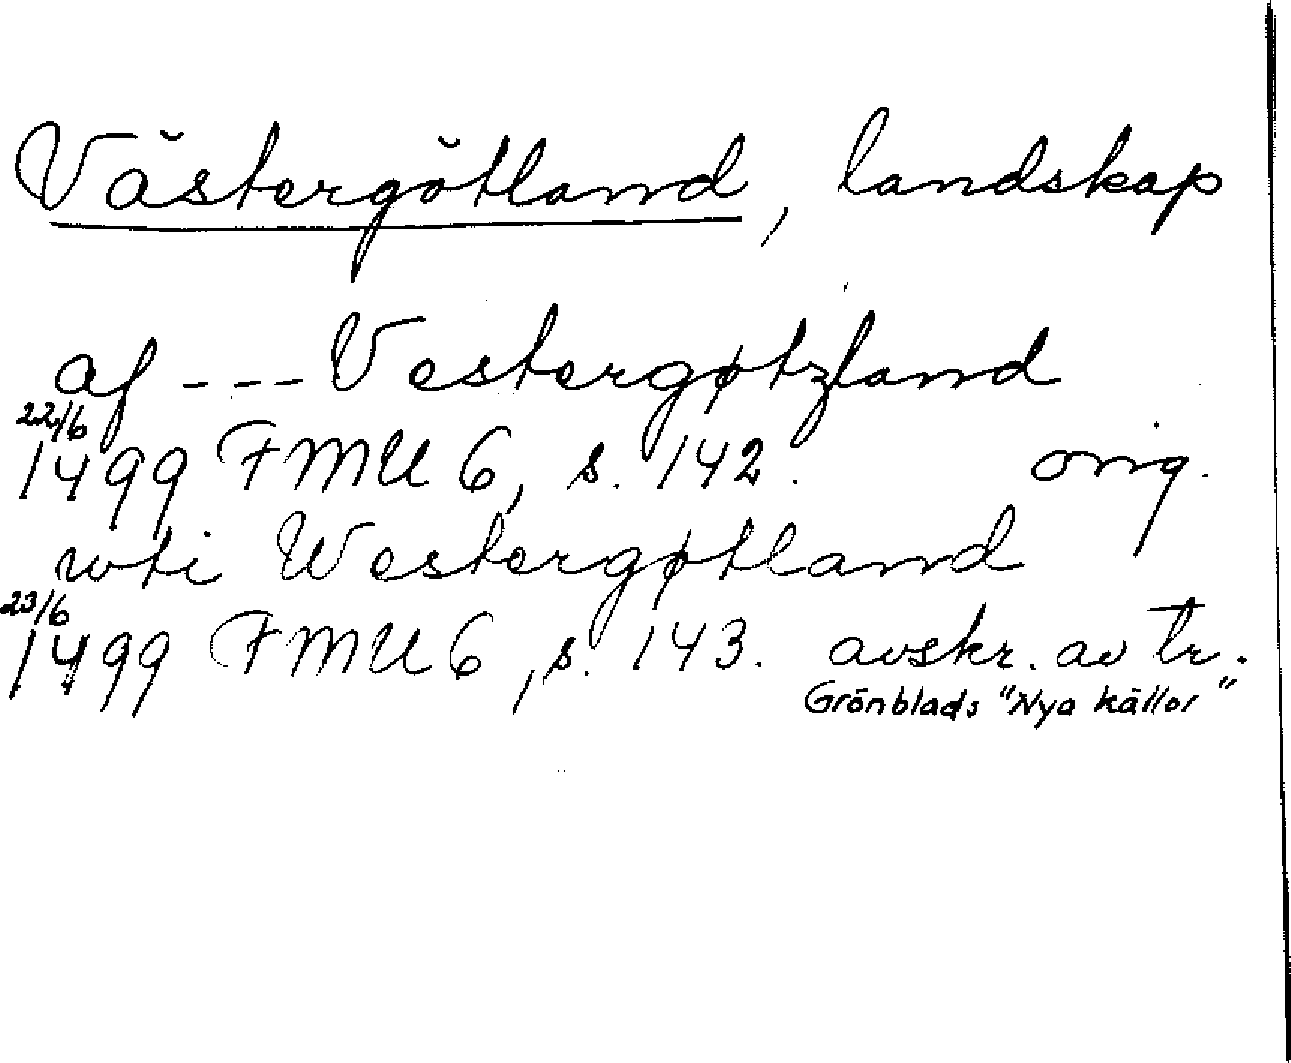 Västergötland, landskap
af --- Vestergøtzland
22/6
1499 FMU 6, s. 142. orig.
wti Westergøtland
23/6
1499 FMU 6, s. 143. avskr. av tr.
Grönblads "Nya källor"